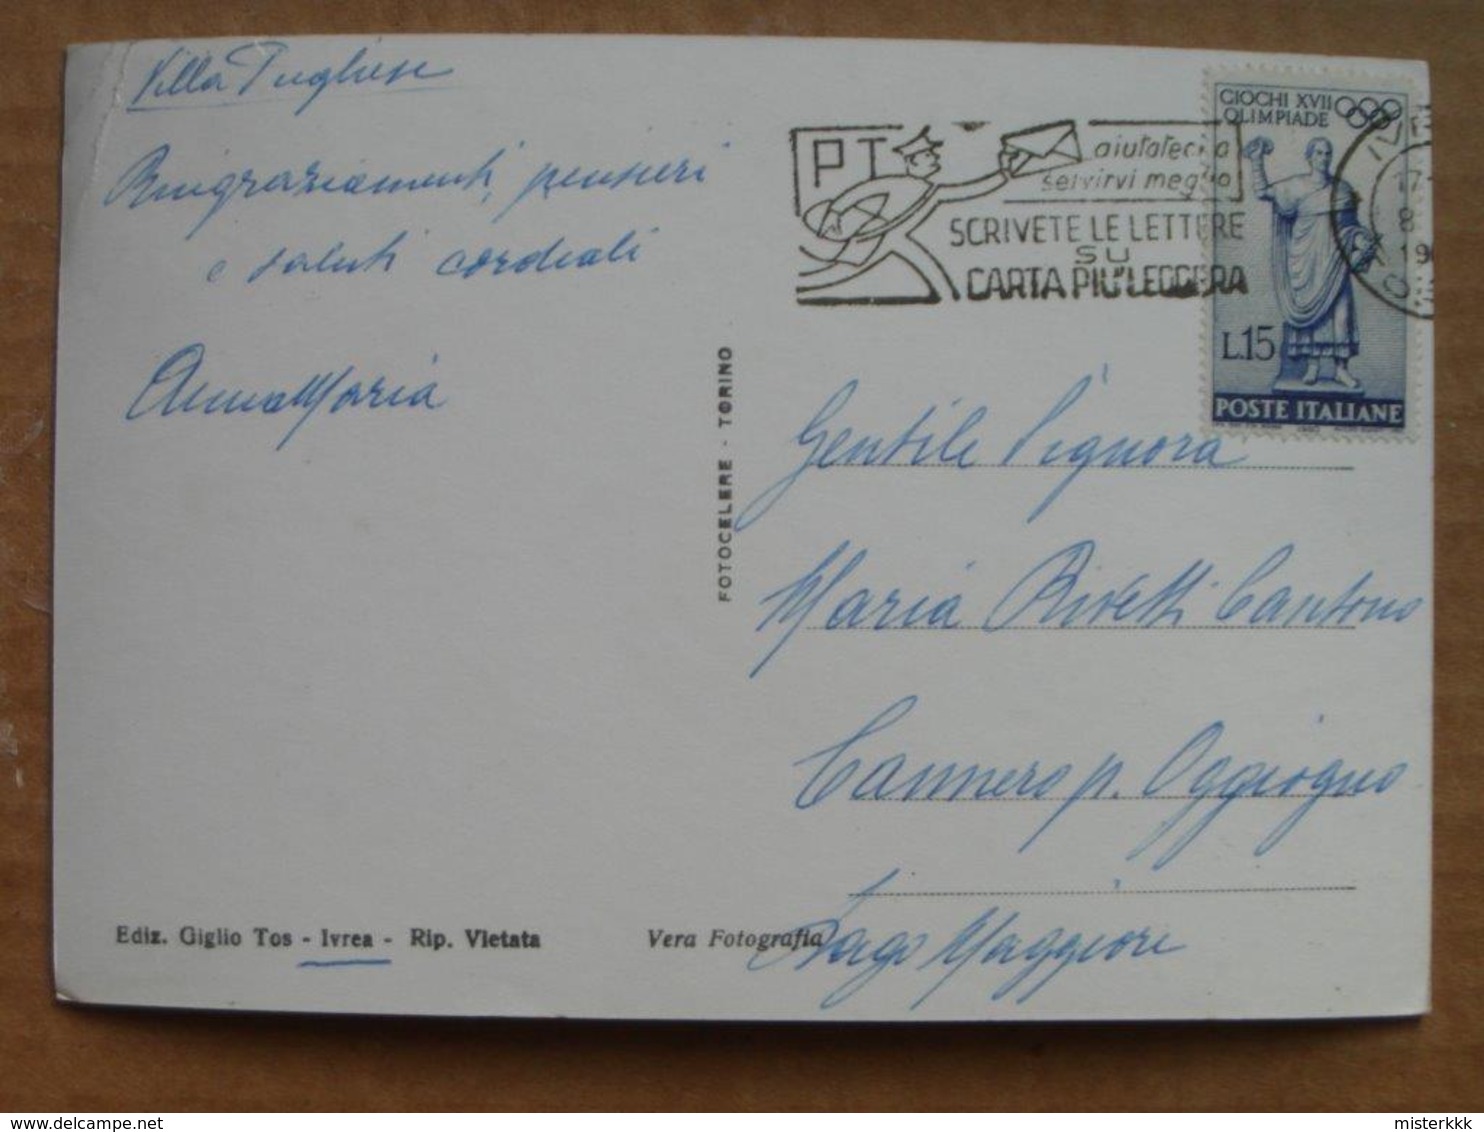 Villa Pugliese
Ringraziamenti, pensieri
e saluti cordiali
AnnaMaria
PT
aiutateci a
servirvi meglio
SCRIVETE LE LETTERE
SU
CARTA PIU' LEGGERA
GIOCHI XVII
OLIMPIADE
L.15
POSTE ITALIANE
FOTOCELERE - TORINO
Gentile Signora
Maria Rivetti Cantono
Cannero p. Oggiogno
Lago Maggiore
Ediz. Giglio Tos - Ivrea - Rip. Vietata
Vera Fotografia
misterkkk